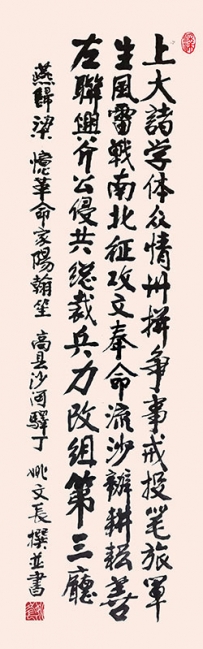 上大諸学体众情卅拼争事戒投笔旅軍
生風雷戰南北征攻文奉命流沙辦耕耘善
左聯興斧公侵共總裁兵力改组第三廳
燕歸梁 憶革命家陽翰笙 高县沙河驛丁 姚文長撰並書